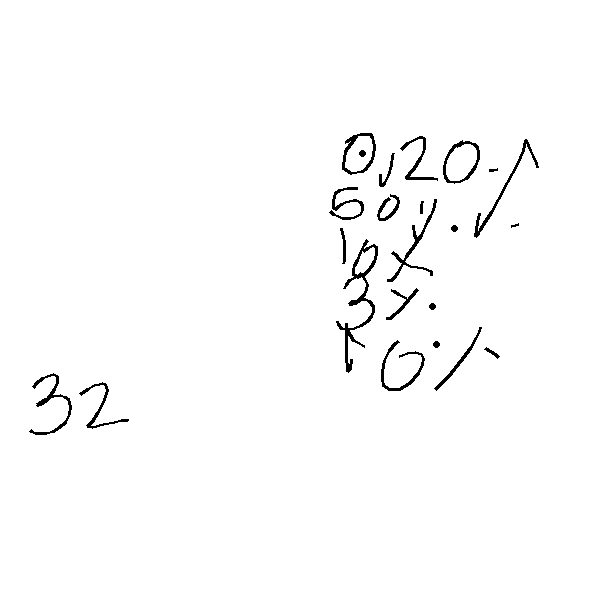 0,20
50%
10%
3%
10%
32